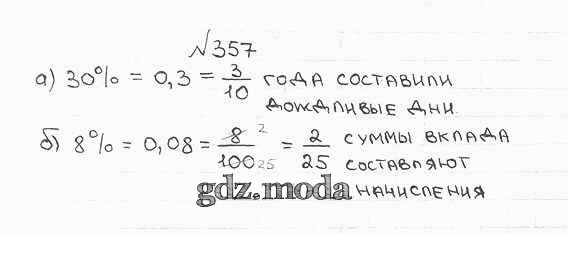 №357
а) 30% = 0,3 = 3/10 года составили
дождливые дни.
б) 8% = 0,08 = 8/100 2 25 = 2/25 суммы вклада
составляют
gdz.moda начисления